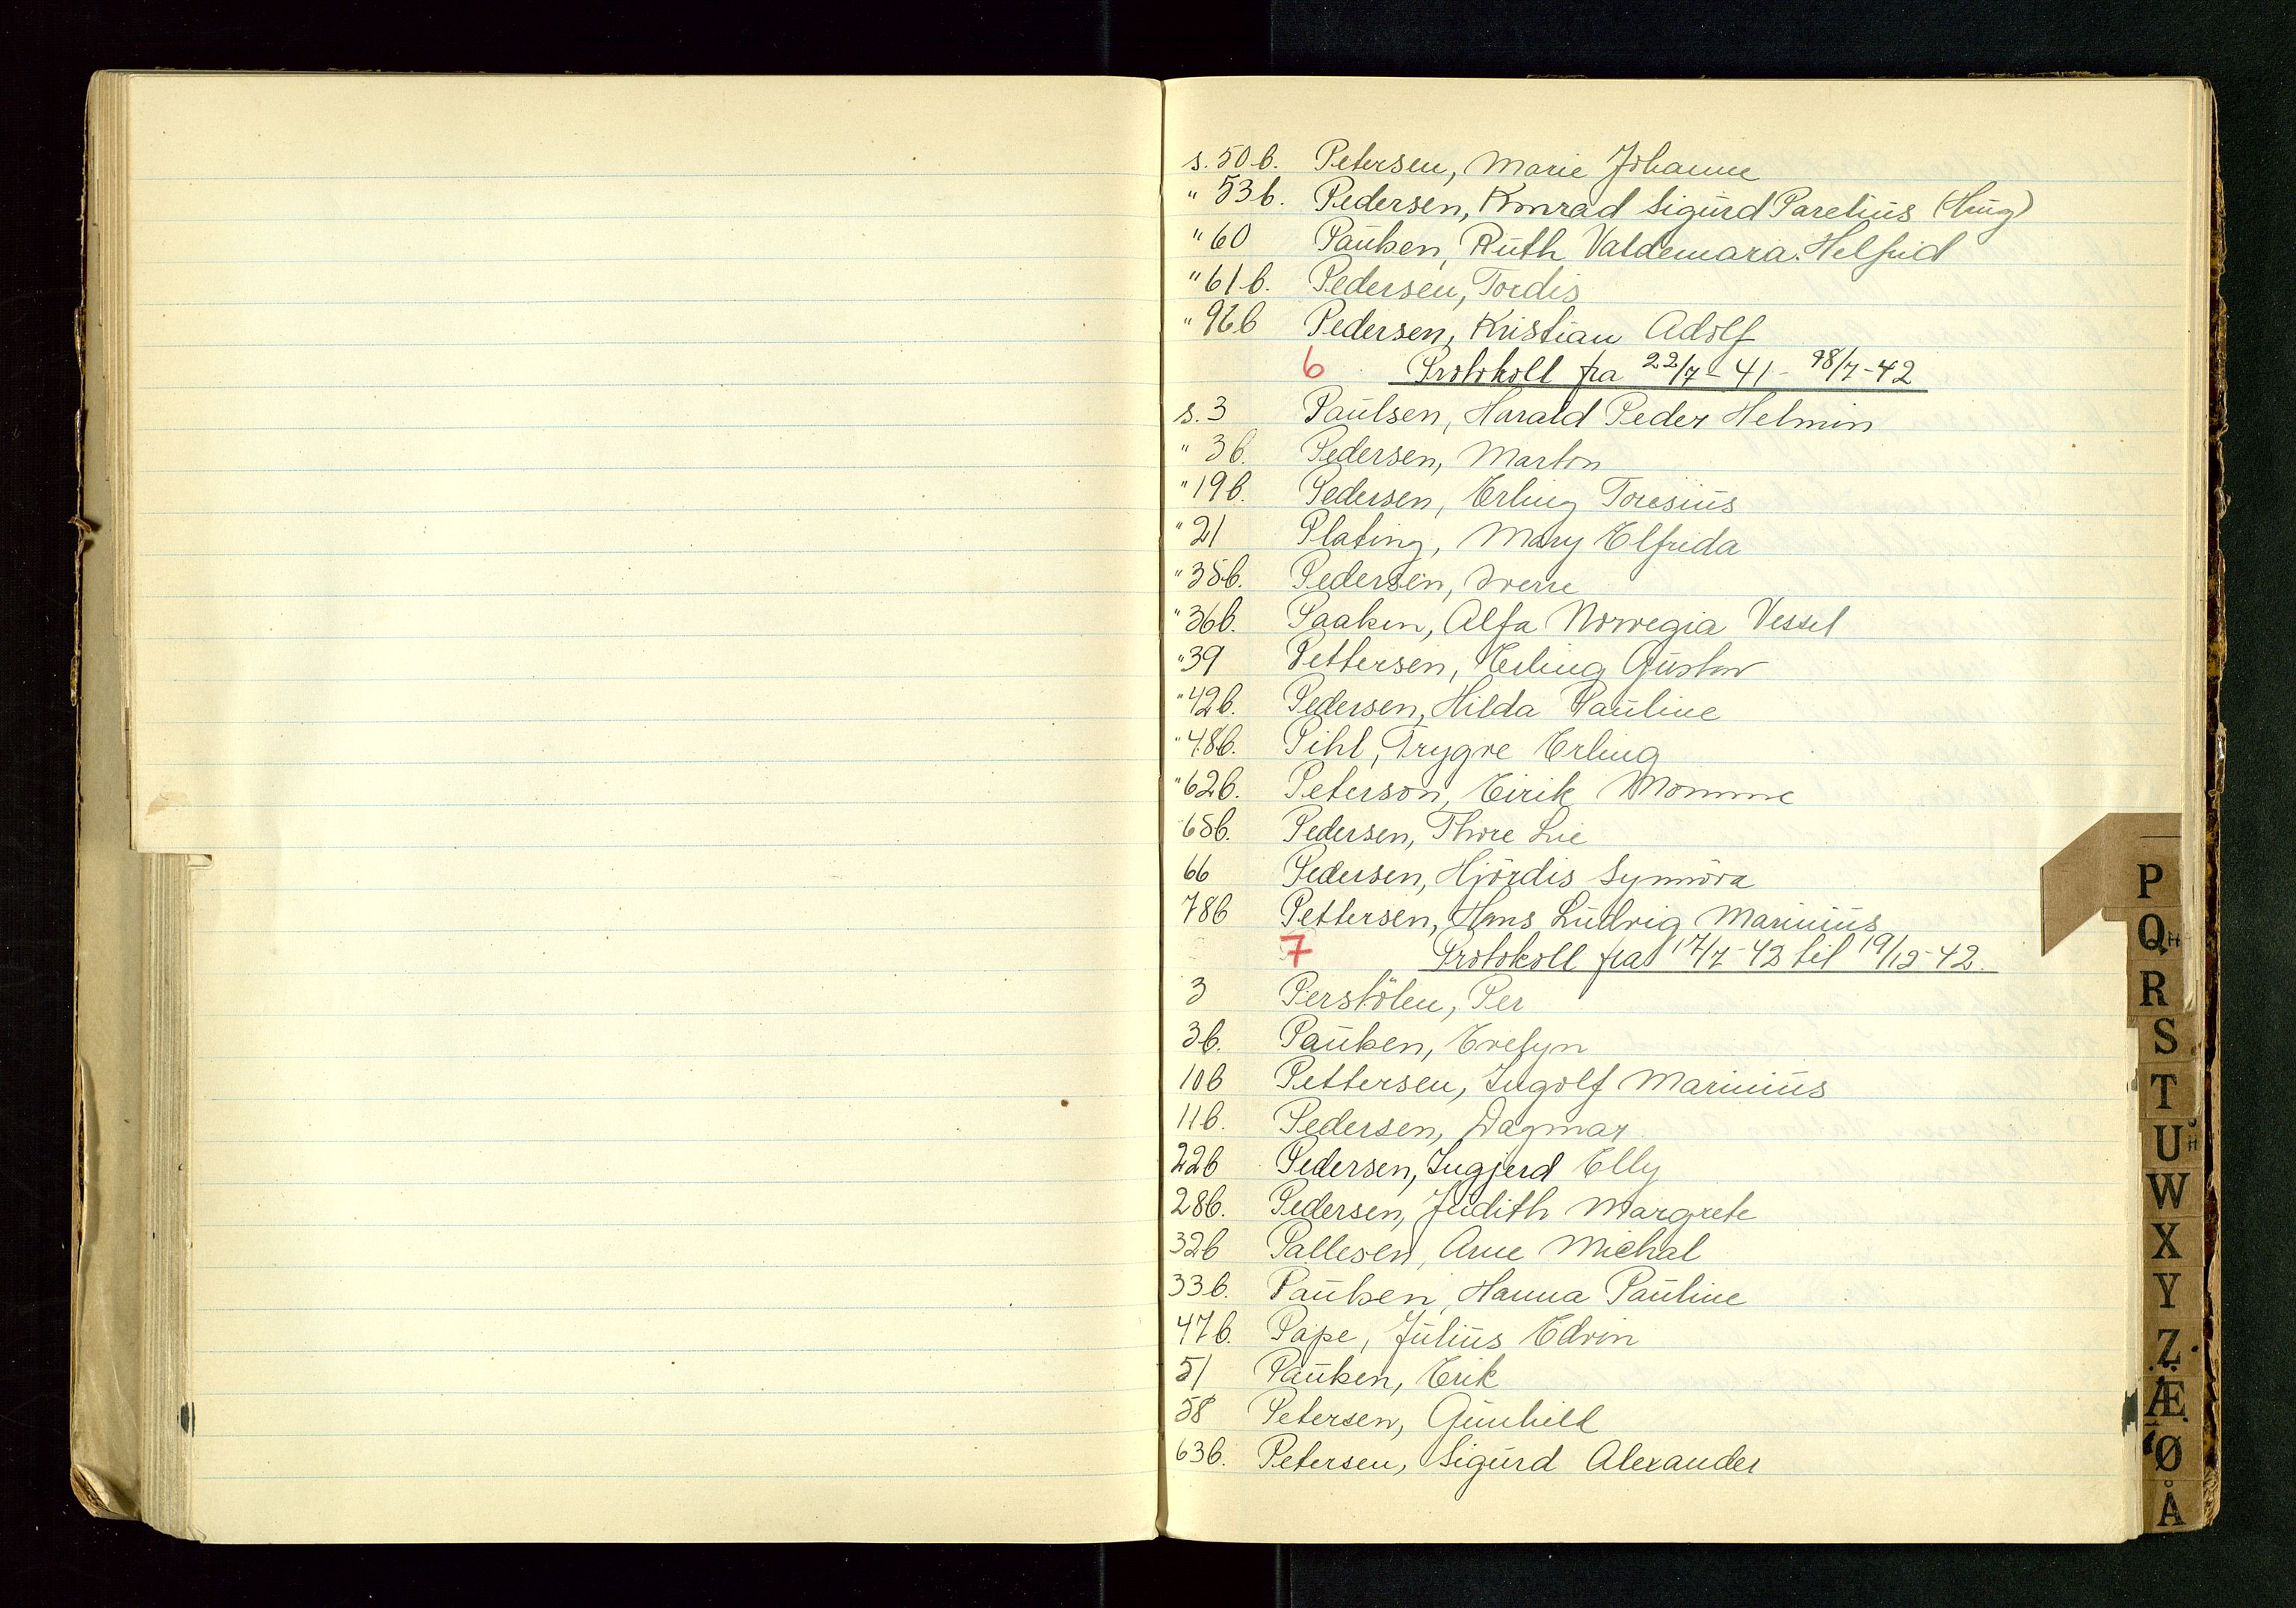 s. 50 b. Petersen, Marie Johanne
" 53 b. Pedersen, Konrad Sigurd Parelius (Haug)
" 60 Paulsen, Ruth Valdemara Helfrid
" 61 b. Pedersen, Tordis
" 96 b Pedersen, Kristian Adolf
6 Protokoll fra 22/7-41 - 98/7-42
s. 3 Paulsen, Harald Peder Helmin
" 3 b. Pedersen, Marton
" 19 b. Pedersen, Erling Toresius
" 21 Plating, Mary Elfrida
" 35 b. Pedersen, Sverre
" 36 b. Paaken, Alfa Norvegia Vessel
" 39 Pettersen, Erling Gustav
" 42 b. Pedersen, Hilda Pauline
" 48 b. Pihl, Trygve Erling
" 62 b. Peterson, Eirik Momme
65 b. Pedersen, Thore Lie
66 Pedersen, Hjördis Synnöva
78 b Pettersen, Hans Ludvig Marinius
7 Protokoll fra 17/7-42 til 19/12-42
3 Perstölen, Per
3 b. Paulsen, Evelyn
10 b Pettersen, Ingolf Marinius
11 b. Pedersen, Dagmar
22 b Pedersen, Ingjerd Elly
28 b. Pedersen, Judith Margrete
32 b Pallesen, Arne Michal
33 b. Paulsen, Hanna Pauline
47 b. Pape, Julius Edvin
51 Paulsen, Erik
58 Petersen, Gunhild
63 b. Petersen, Sigurd Alexander
P
Q
R
S
T
U
W
X
Y
Z
Æ
Ø
Å